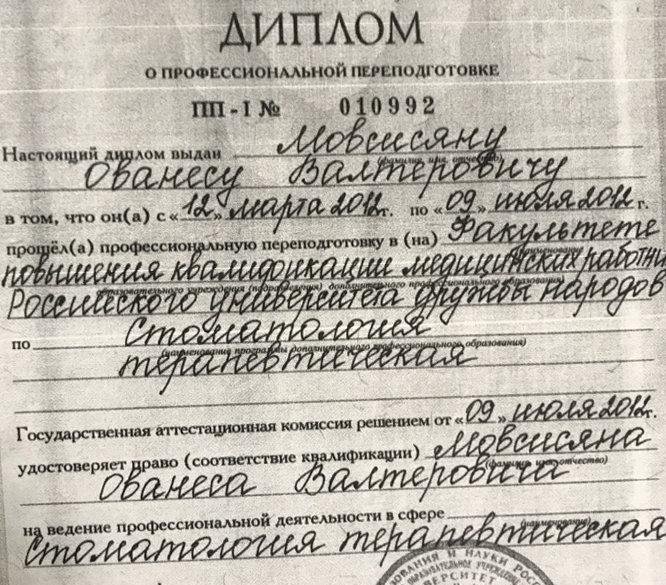 ДИПЛОМ
О ПРОФЕССИОНАЛЬНОЙ ПЕРЕПОДГОТОВКЕ
ПП - I № 010992
Настоящий диплом выдан Мовсисяну
(фамилия, имя, отчество)
Ованесу Валтеровичу
в том, что он(а) с «12» марта 2012 г. по «09» июля 2012 г.
прошёл(а) профессиональную переподготовку в (на) Факультете
(наименование
повышения квалификации медицинских работни
образовательного учреждения (подразделения) дополнительного профессионального образования)
Российского университета дружбы народов
по Стоматология
(наименование программы дополнительного профессионального образования)
терапевтическая
Государственная аттестационная комиссия решением от «09» июля 2012 г.
удостоверяет право (соответствие квалификации) Мовсисяна
(фамилия, имя, отчество)
Ованеса Валтеровича
на ведение профессиональной деятельности в сфере
(наименование)
Стоматология терапевтическая
ОВАНИЯ И НАУКИ РОС